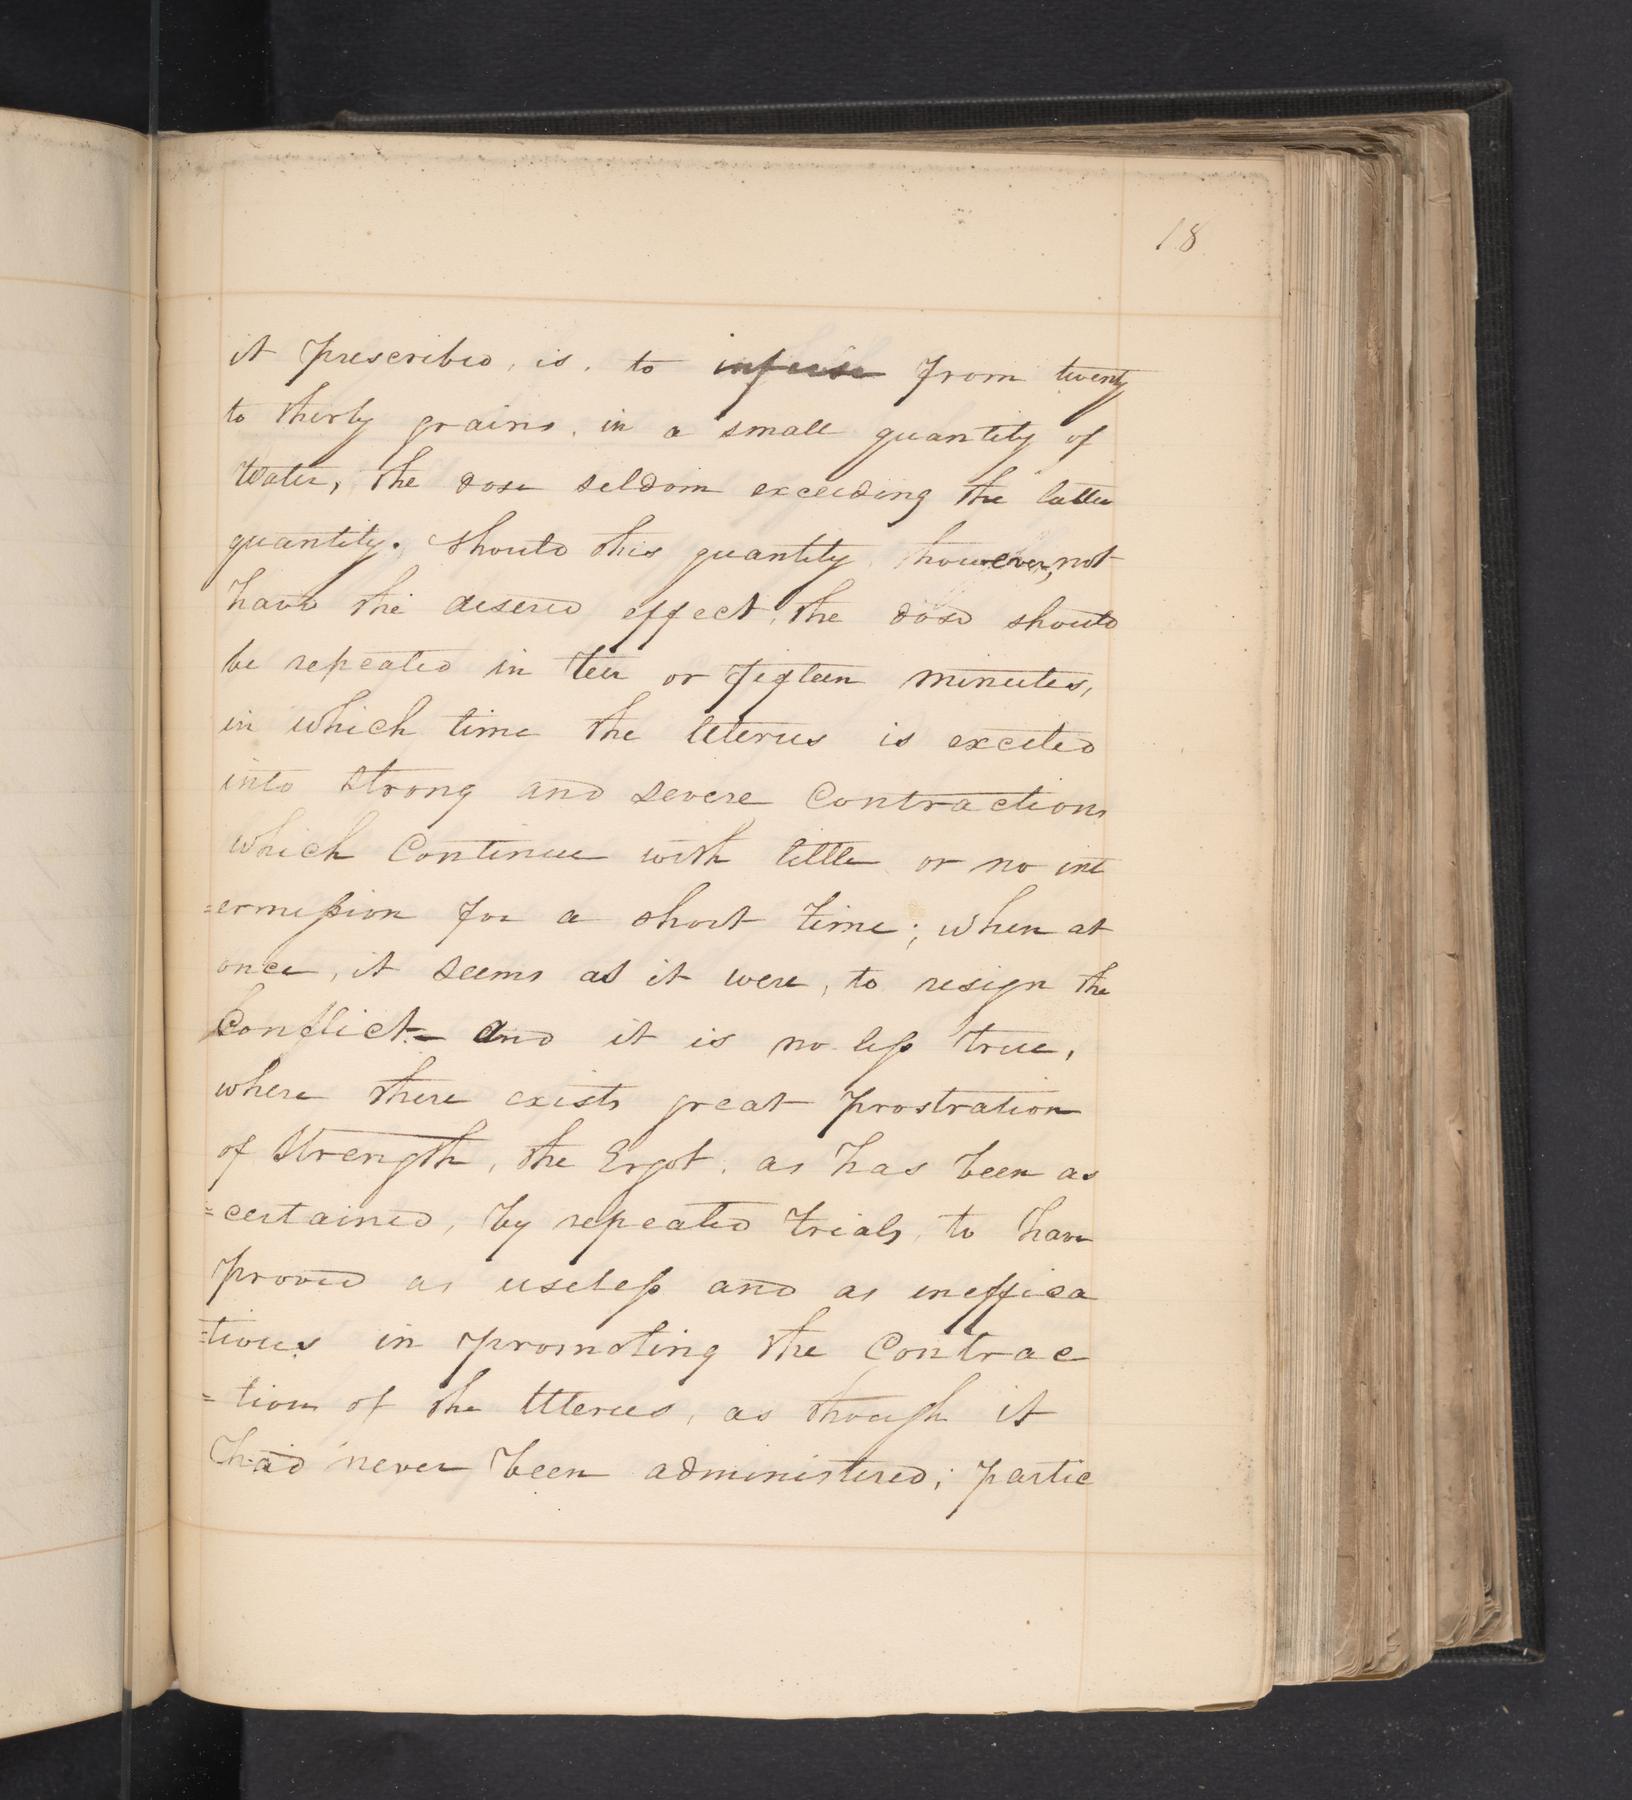 18
it prescribed, is, to infuse from twenty
to thirty grains, in a small quantity of
Water, the dose seldom exceeding the latter
quantity. Should this quantity, however, not
have the desired effect, the dose should
be repeated in ten or fifteen minutes,
in which time the Uterus is excited
into strong and severe Contractions
which Continue with little or no int
=ermission for a short time; when at
once, it seems as it were, to resign the
Conflict- and it is no less true,
where there exists great prostration
of Strength, the Ergot, as has been as
=certained, by repeated trials, to have
proved as useless and as ineffica
=tious in promoting the Contrac
=tion of the Uterus, as though it
had never been administered; partic